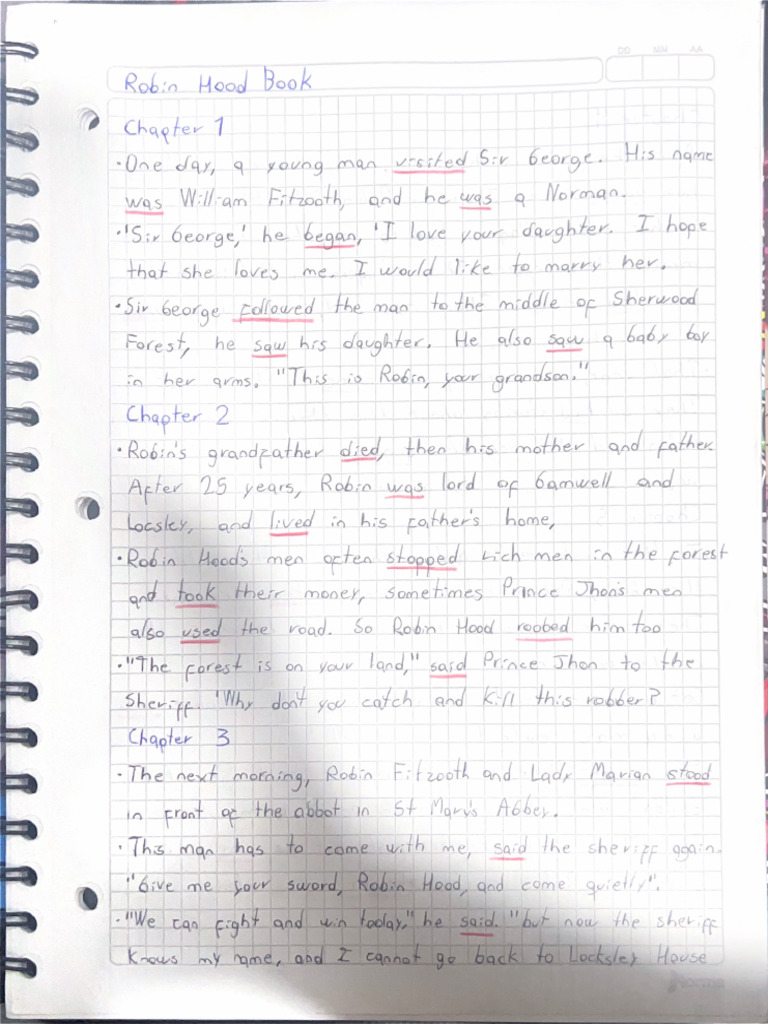 DD MM AA
Robin Hood Book
Chapter 1
• One day, a young man visited Sir George. His name
was William Fitzooth, and he was a Norman.
• 'Sir George,' he began, 'I love your daughter. I hope
that she loves me. I would like to marry her.
• Sir George followed the man to the middle of Sherwood
Forest, he saw his daughter. He also saw a baby boy
in her arms. "This is Robin, your grandson."
Chapter 2
• Robin's grandfather died, then his mother and father.
After 25 years, Robin was lord of Gamwell and
Locsley, and lived in his father's home,
• Robin Hood's men often stopped rich men in the forest
and took their money, sometimes Prince Jhon's men
also used the road. So Robin Hood roobed him too
• "The forest is on your land," said Prince Jhon to the
Sheriff. 'Why don't you catch and kill this robber?
Chapter 3
• The next morning, Robin Fitzooth and Lady Marian stood
in front of the abbot in St Mary's Abbey.
• This man has to come with me, said the sheriff again.
"Give me your sword, Robin Hood, and come quietly".
• "We can fight and win today," he said. "but now the sheriff
knows my name, and I cannot go back to Locksley House
Norma